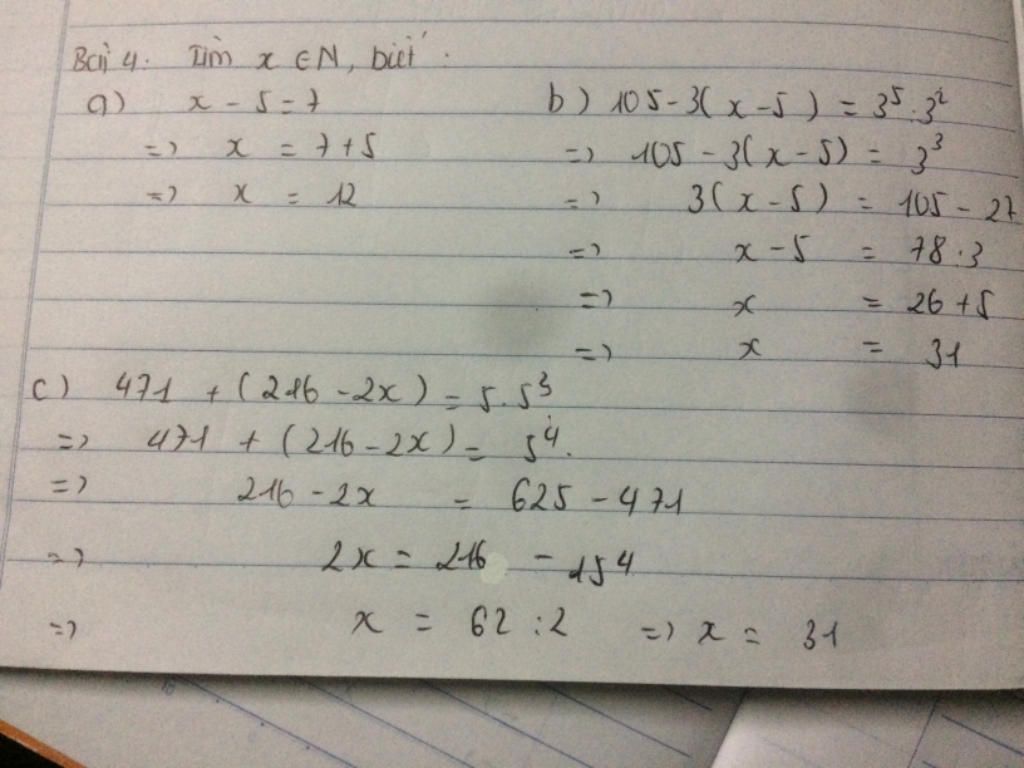 Bài 4. Tìm x ∈ N, biết.
a) x - 5 = 7
=> x = 7 + 5
=> x = 12
b) 105 - 3(x - 5) = 3⁵ : 3²
=> 105 - 3(x - 5) = 3³
=> 3(x - 5) = 105 - 27
=> x - 5 = 78 : 3
=> x = 26 + 5
=> x = 31
c) 471 + (216 - 2x) = 5.5³
=> 471 + (216 - 2x) = 5⁴.
=> 216 - 2x = 625 - 471
=> 2x = 216 - 154
=> x = 62 : 2 => x = 31